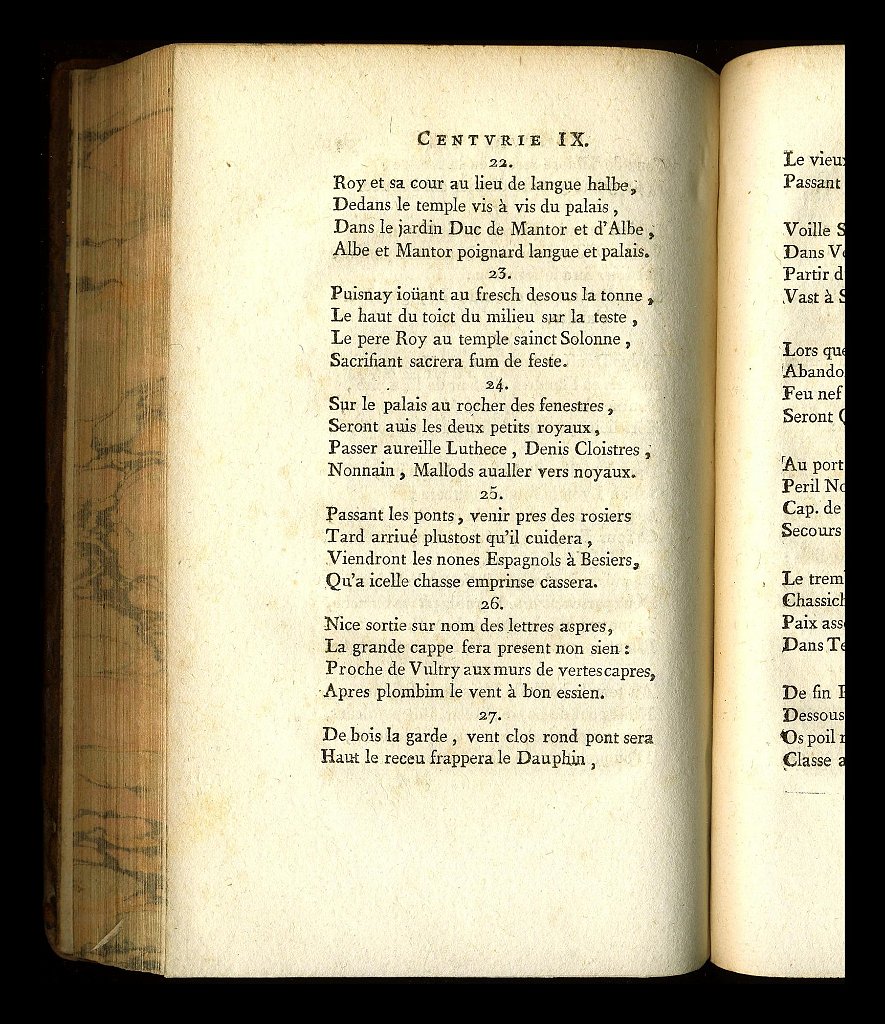 CENTVRIE IX.
22.
Roy et sa cour au lieu de langue halbe,
Dedans le temple vis à vis du palais ,
Dans le jardin Duc de Mantor et d'Albe ,
Albe et Mantor poignard langue et palais.
23.
Puisnay ioüant au fresch desous la tonne ,
Le haut du toict du milieu sur la teste ,
Le pere Roy au temple sainct Solonne ,
Sacrifiant sacrera fum de feste.
24.
Sur le palais au rocher des fenestres ,
Seront auis les deux petits royaux ,
Passer aureille Luthece , Denis Cloistres ,
Nonnain , Mallods aualler vers noyaux.
25.
Passant les ponts , venir pres des rosiers
Tard arriué plustost qu'il cuidera ,
Viendront les nones Espagnols à Besiers,
Qu'a icelle chasse emprinse cassera.
26.
Nice sortie sur nom des lettres aspres,
La grande cappe fera present non sien :
Proche de Vultry aux murs de vertes capres,
Apres plombim le vent à bon essien.
27.
De bois la garde , vent clos rond pont sera
Haut le receu frappera le Dauphin ,
Le vieu
Passant
Voille S
Dans V
Partir d
Vast à S
Lors que
Abando
Feu nef
Seront
Au port
Peril No
Cap. de
Secours
Le trem
Chassich
Paix ass
Dans Te
De fin
Dessous
Os poil
Classe a